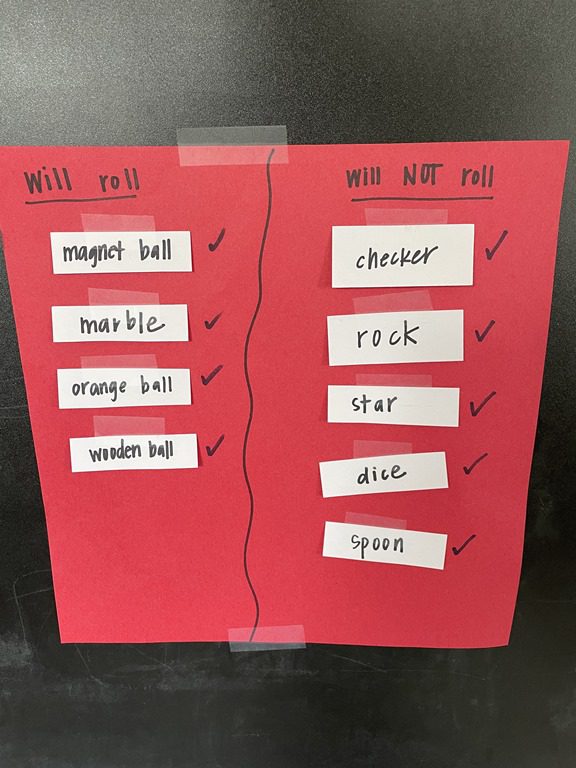 Will roll
magnet ball
marble
orange ball
wooden ball
Will NOT roll
checker
rock
star
dice
spoon